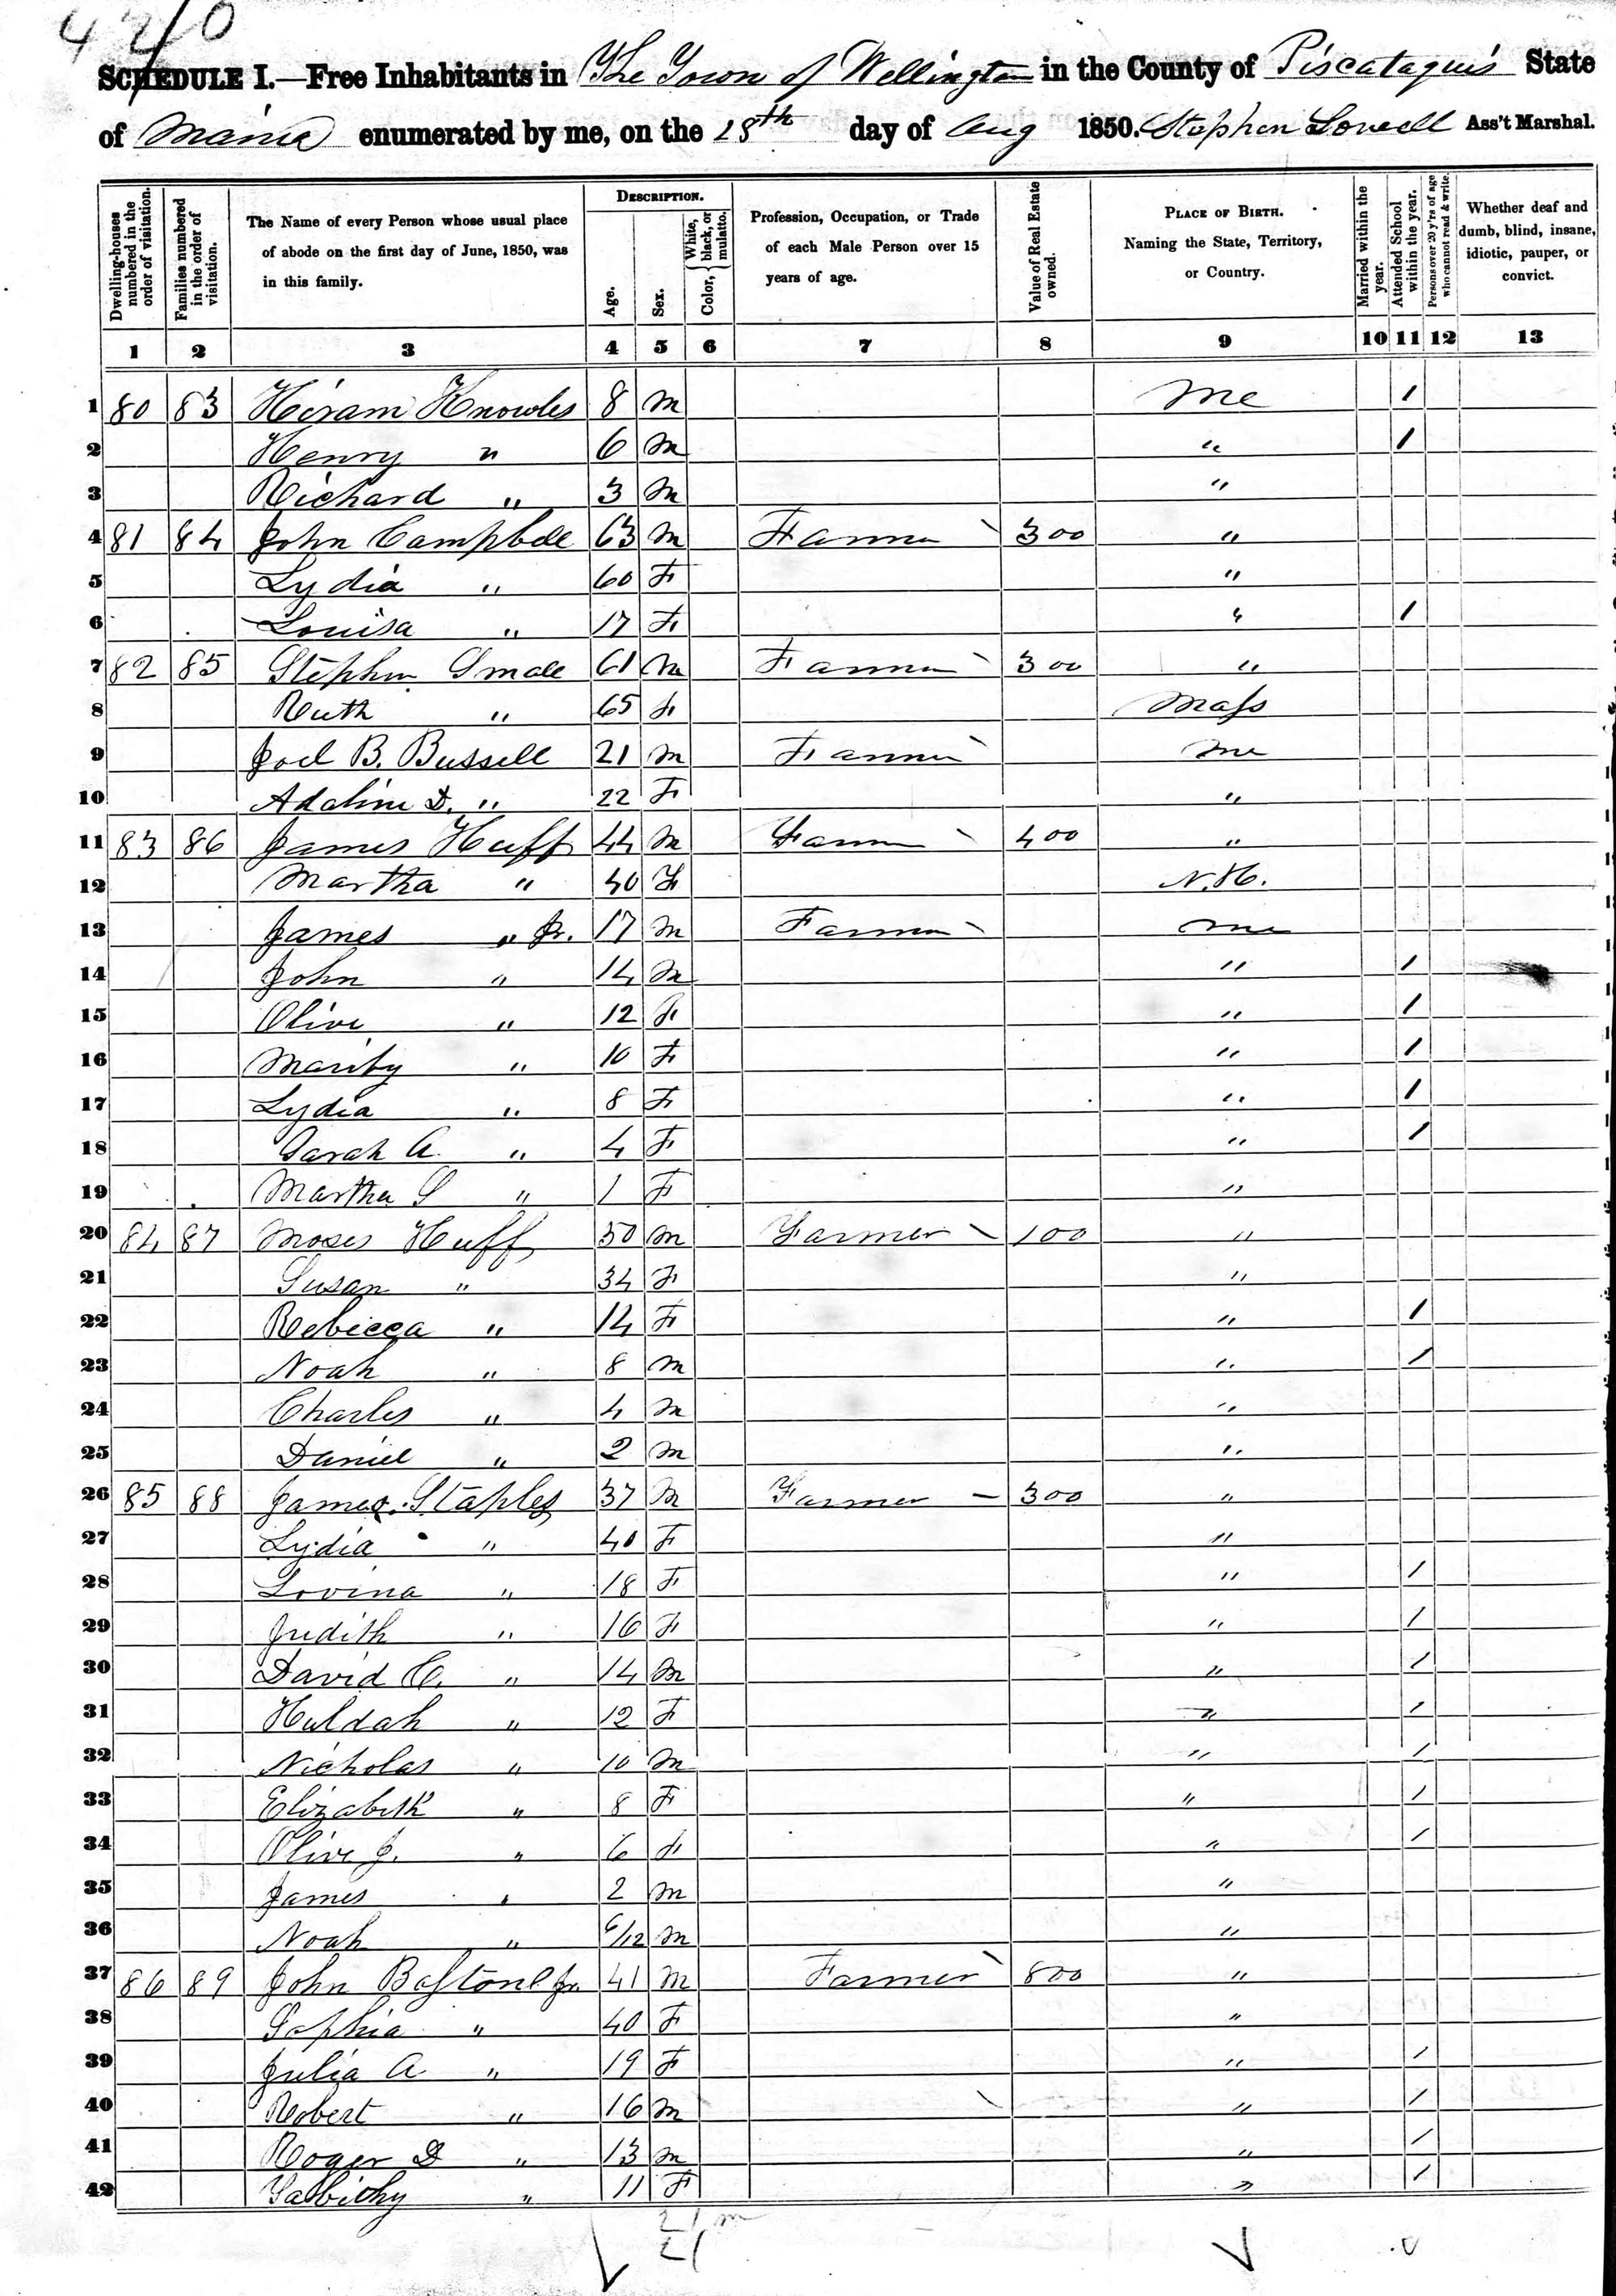 420
SCHEDULE I.—Free Inhabitants in The Town of Wellington in the County of Piscataquis State
of Maine enumerated by me, on the 28th day of Aug 1850. Stephen Lowell Ass't Marshal.
Dwelling-houses numbered in the order of visitation.
Families numbered in the order of visitation.
The Name of every Person whose usual place of abode on the first day of June, 1850, was in this family.
DESCRIPTION.
Age.
Sex.
Color, { White, black, or mulatto.
Profession, Occupation, or Trade of each Male Person over 15 years of age.
Value of Real Estate owned.
PLACE OF BIRTH. Naming the State, Territory, or Country.
Married within the year.
Attended School within the year.
Persons over 20 y'rs of age who cannot read & write.
Whether deaf and dumb, blind, insane, idiotic, pauper, or convict.
1 2 3 4 5 6 7 8 9 10 11 12 13
1 80 83 Hiram Knowles 8 M Me 1
2 Henry " 6 M " 1
3 Richard " 3 M "
4 81 84 John Campbell 63 M Farmer 300 "
5 Lydia " 60 F "
6 Louisa " 17 F " 1
7 82 85 Stephen Small 61 M Farmer 300 "
8 Ruth " 65 F Mass
9 Joel B. Bussell 21 M Farmer Me
10 Adaline D. " 22 F "
11 83 86 James Huff 44 M Farmer 400 "
12 Martha " 40 F N.H.
13 James " Jr. 17 M Farmer Me
14 John " 14 M " 1
15 Olive " 12 F " 1
16 Mariby " 10 F " 1
17 Lydia " 8 F " 1
18 Sarah A. " 4 F " 1
19 Martha S " 1 F "
20 84 87 Moses Huff 50 M Farmer 100 "
21 Susan " 34 F "
22 Rebicca " 14 F " 1
23 Noah " 8 M " 1
24 Charles " 4 M "
25 Daniel " 2 M "
26 85 88 James Staples 37 M Farmer 300 "
27 Lydia " 40 F "
28 Lovina " 18 F " 1
29 Judith " 16 F " 1
30 David C. " 14 M " 1
31 Huldah " 12 F " 1
32 Nicholas " 10 M " 1
33 Elizabeth " 8 F " 1
34 Olive J. " 6 F " 1
35 James " 2 M "
36 Noah " 6/12 M "
37 86 89 John Bastone Jr. 41 M Farmer 800 "
38 Sophia " 40 F "
39 Julia A " 19 F " 1
40 Robert " 16 M " 1
41 Roger D " 13 M " 1
42 Tabithy " 11 F " 1
21 m
21